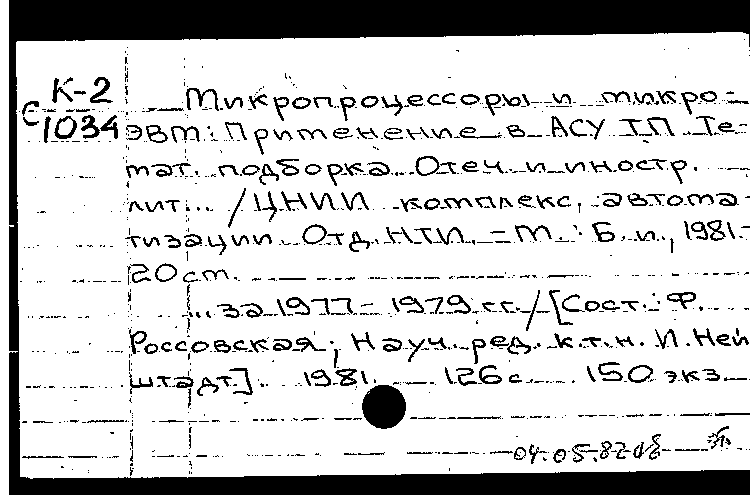 К-2
С 1034
Микропроцессоры и микро-
ЭВМ: Применение в АСУ ТП Те-
мат. подборка Отеч. и иностр.
лит... /ЦНИИ комплекс. автома-
тизации. Отд. НТИ. – М.: Б. и., 1981.-
20 см.
... за 1977 – 1979 гг. / [Сост.: Ф.
Россовская; Науч. ред. к.т.н. И. Ней
штадт]. 1981. 126 с. 150 экз.
04.05.82